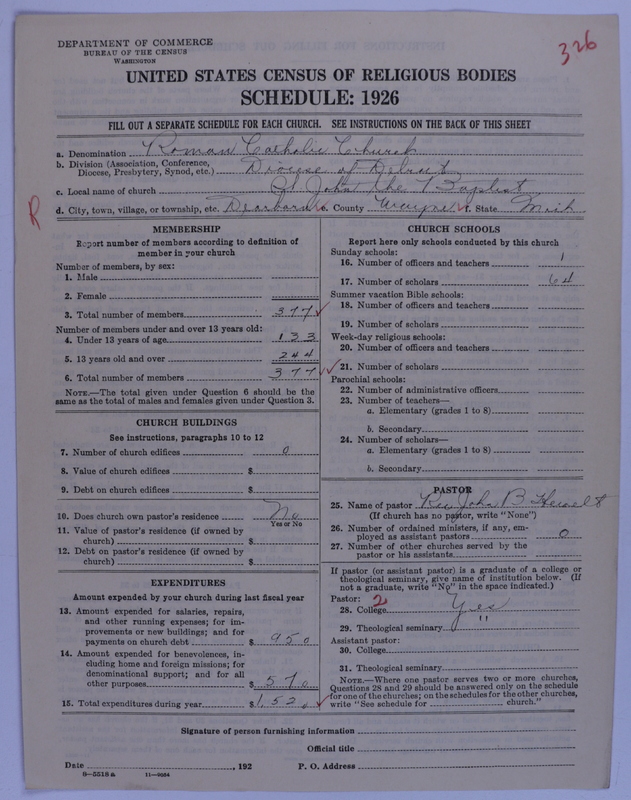 DEPARTMENT OF COMMERCE
BUREAU OF THE CENSUS
WASHINGTON
326
UNITED STATES CENSUS OF RELIGIOUS BODIES
SCHEDULE: 1926
FILL OUT A SEPARATE SCHEDULE FOR EACH CHURCH. SEE INSTRUCTIONS ON THE BACK OF THIS SHEET
a. Denomination Roman Catholic Church
b. Division (Association, Conference, Diocese, Presbytery, Synod, etc.) Diocese of Detroit
c. Local name of church St John the Baptist
R
d. City, town, village, or township, etc. Dearborn e. County Wayne f. State Mich
MEMBERSHIP
Report number of members according to definition of
member in your church
Number of members, by sex:
1. Male
2. Female
3. Total number of members 377
Number of members under and over 13 years old:
4. Under 13 years of age 133
5. 13 years old and over 244
6. Total number of members 377
NOTE.—The total given under Question 6 should be
same as the total of males and females given under Question 3.
CHURCH BUILDINGS
See instructions, paragraphs 10 to 12
7. Number of church edifices 0
8. Value of church edifices $
9. Debt on church edifices $
10. Does church own pastor's residence No
Yes or No
11. Value of pastor's residence (if owned by
church) $
12. Debt on pastor's residence (if owned by
church) $
EXPENDITURES
Amount expended by your church during last fiscal year
13. Amount expended for salaries, repairs,
and other running expenses; for im-
provements or new buildings; and for
payments on church debt $ 950
14. Amount expended for benevolences, in-
cluding home and foreign missions; for
denominational support; and for all
other purposes $ 570
15. Total expenditures during year $ 1,520
CHURCH SCHOOLS
Report here only schools conducted by this church
Sunday schools:
16. Number of officers and teachers 1
17. Number of scholars 64
Summer vacation Bible schools:
18. Number of officers and teachers
19. Number of scholars
Week-day religious schools:
20. Number of officers and teachers
21. Number of scholars
Parochial schools:
22. Number of administrative officers
23. Number of teachers—
a. Elementary (grades 1 to 8)
b. Secondary
24. Number of scholars—
a. Elementary (grades 1 to 8)
b. Secondary
PASTOR
25. Name of pastor Rev John B
(If church has no pastor, write "None")
26. Number of ordained ministers, if any, em-
ployed as assistant pastors 0
27. Number of other churches served by the
pastor or his assistants
If pastor (or assistant pastor) is a graduate of a college or
theological seminary, give name of institution below. (If
not a graduate, write "No" in the space indicated.)
Pastor: 2
28. College Yes
29. Theological seminary "
Assistant pastor:
30. College
31. Theological seminary
NOTE.—Where one pastor serves two or more churches,
Questions 28 and 29 should be answered only on the schedule
for one of the churches; on the schedules for the other churches,
write "See schedule for church."
Signature of person furnishing information
Official title
Date , 192 P. O. Address
8—5518a 11—9564